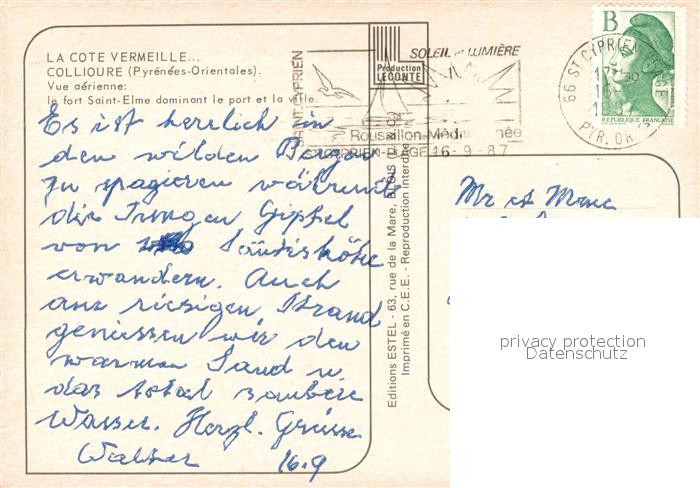 LA COTE VERMEILLE...
COLLIOURE (Pyrénées-Orientales).
Vue aérienne:
le fort Saint-Elme dominant le port et la ville.
Es ist herrlich in
den wilden Bergen
zu spazieren während
die Jungen Gipfel
von Säntishöhe
erwandern. Auch
am riesigen Strand
geniessen wir den
warmen Sand u.
das total saubere
Wasser. Herzl. Grüsse
Walter 16.9
Production
LECONTE
SAINT CYPRIEN
SOLEIL et LUMIÈRE
Roussillon-Méditerranée
ST CYPRIEN-PLAGE 16-9-87
Editions ESTEL - 63, rue de la Mare, BLOIS
Imprimé en C.E.E. - Reproduction interdite
B
REPUBLIQUE FRANCAISE
66 ST CYPRIEN PLAGE
PYR. OR.
Mr et Mme
privacy protection
Datenschutz